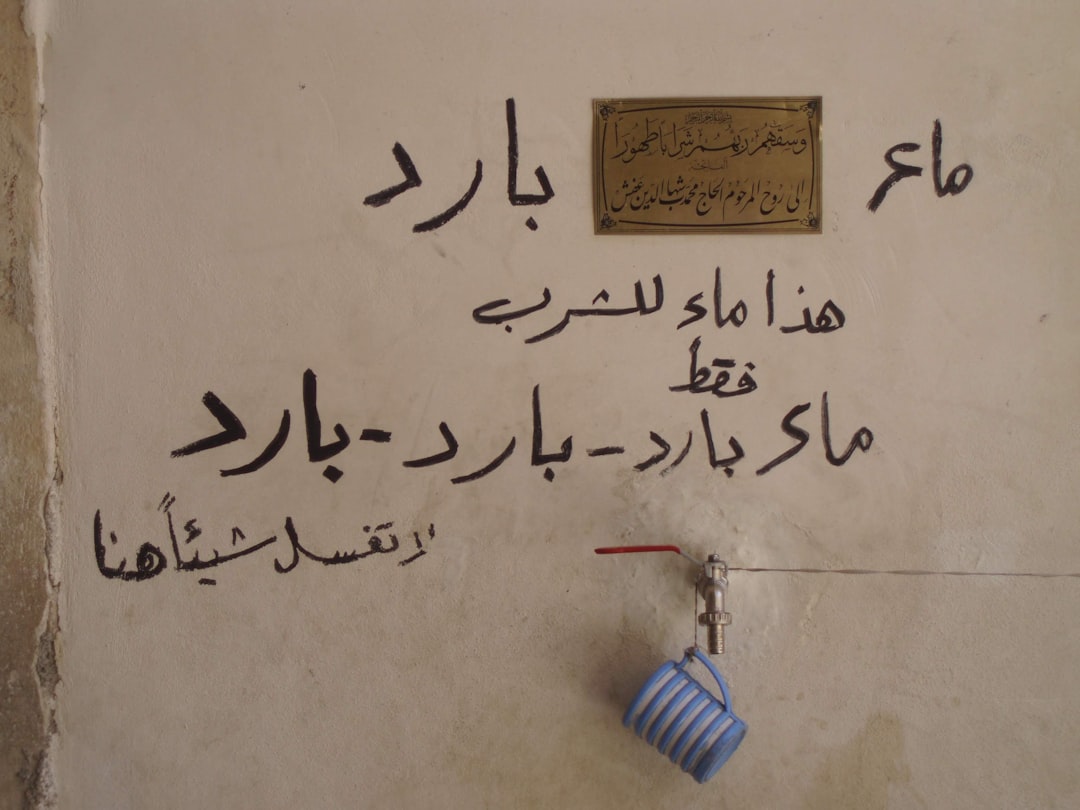 ماء بارد
بسم الله الرحمن الرحيم
وسقهم ربهم شرابا طهوراً
الفاتحة
إلى روح المرحوم الحاج محمد شهاب الدين عنش
هذا ماء للشرب
فقط
ماء بارد - بارد - بارد
لا تغسل شيئاً هنا